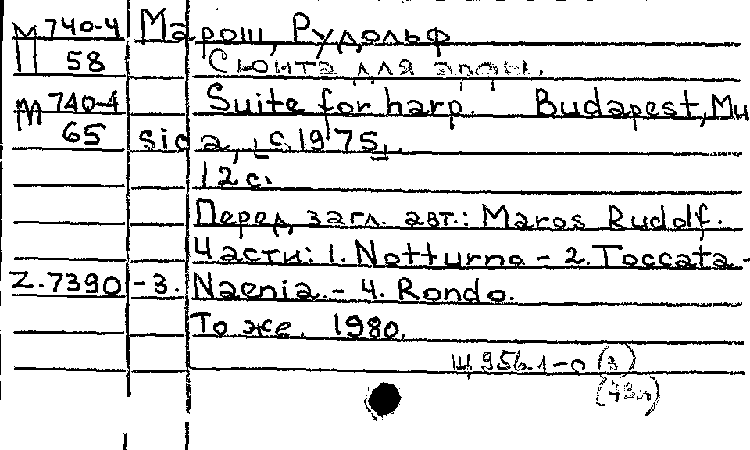 М 740-4 Марош, Рудольф
58 Сюита для арфы.
М 740-4 Suite for harp. Budapest, Mu
65 sica, [c.1975].
12 с.
Перед загл. авт.: Maros Rudolf.
Части: 1. Notturno - 2. Toccata -
Z.7390 - 3. Naenia. - 4. Rondo.
То же. 1980.
Щ956.1-0 (3)